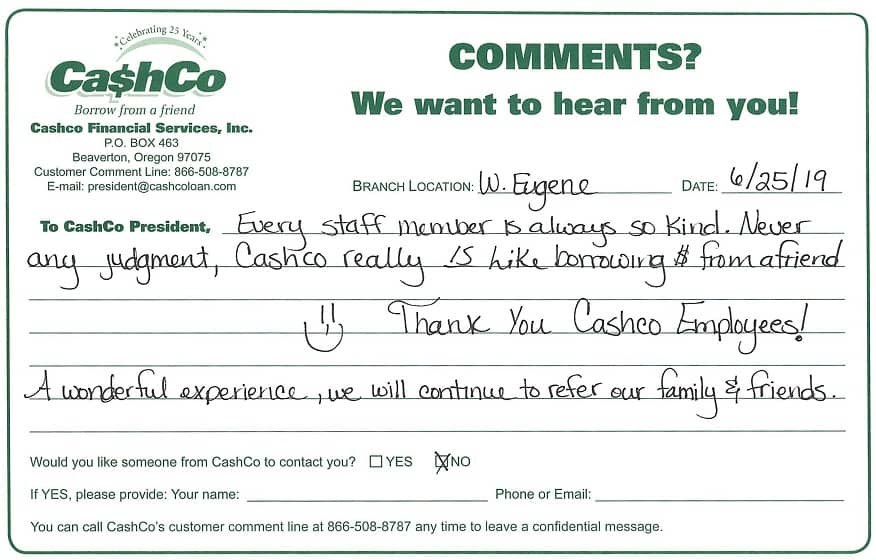 Celebrating 25 Years
Ca$hCo
Borrow from a friend
Cashco Financial Services, Inc.
P.O. BOX 463
Beaverton, Oregon 97075
Customer Comment Line: 866-508-8787
E-mail: president@cashcoloan.com
COMMENTS?
We want to hear from you!
BRANCH LOCATION: W. Eugene DATE: 6/25/19
To CashCo President, Every staff member is always so kind. Never
any judgment, Cashco really is like borrowing $ from a friend
Thank You Cashco Employees!
A wonderful experience, we will continue to refer our family & friends.
Would you like someone from CashCo to contact you? ☐ YES ☒ NO
If YES, please provide: Your name: Phone or Email:
You can call CashCo's customer comment line at 866-508-8787 any time to leave a confidential message.